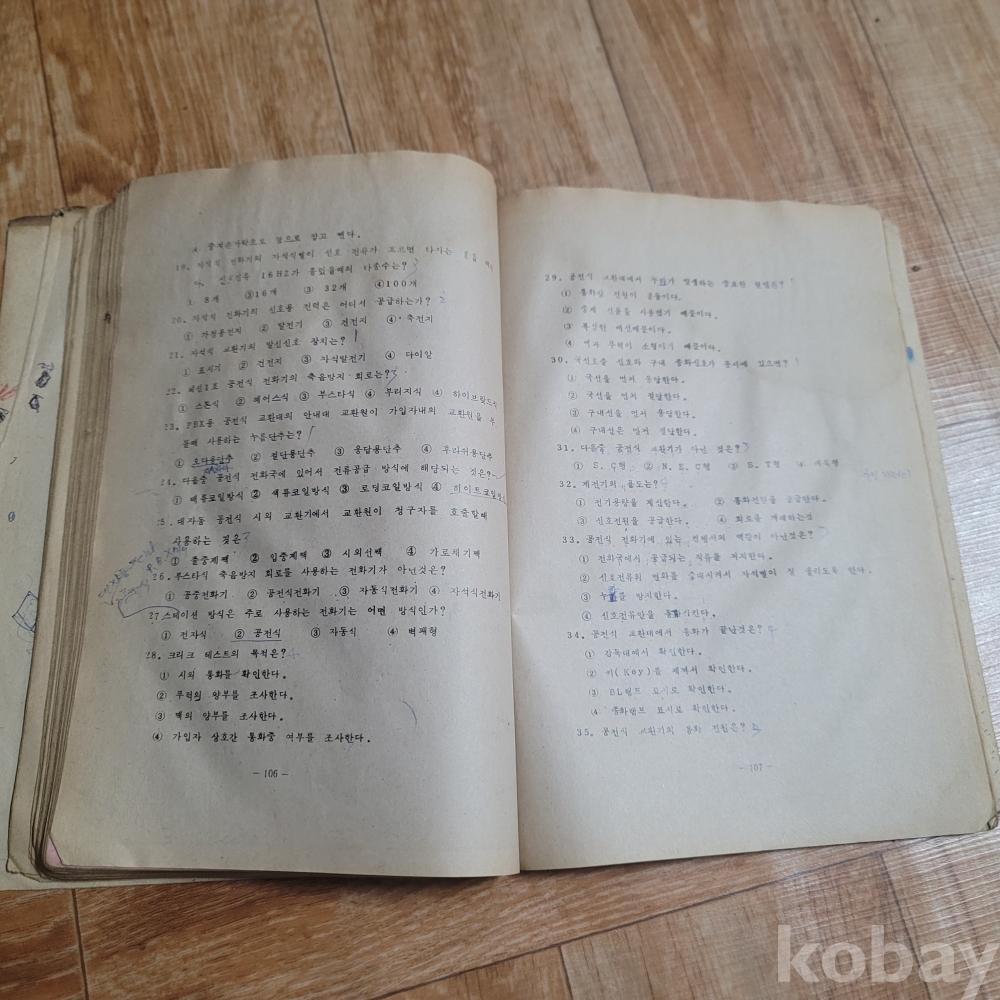 4. 중지손가락으로 앞으로 잡고 뺀다.
19. 자석식 전화기의 자석식벨이 신호 전류가 흐르면 타자는
신호전류 16HZ가 흘렀을때의 타종수는?
1. 8개 ②16개 ③ 32개 ④100개
20. 자석식 전화기의 신호용 전력은 어디서 공급하는가?
① 가정용전지 ② 발전기 ③ 건전지 ④ 축전지
21. 자석식 교환기의 발신신호 장치는?
① 표시기 ② 건전지 ③ 자석발전기 ④ 다이알
22. 체신1호 공전식 전화기의 측음방지 회로는? 3
① 스톤식 ② 페어스식 ③ 부스타식 ④ 부리지식 ④ 하이브릿드식
23. PBX용 공전식 교환대의 안내대 교환원이 가입자내의 교환원을 부
를때 사용하는 누름단추는?
① 오다용단추 ② 절단용단추 ③ 응답용단추 ④ 후라쉬용단추
24. 다음중 공전식 전화국에 있어서 전류공급 방식에 해당되는 것은?
① 배류코일방식 ② 색류코일방식 ③ 로딩코일방식 ④ 히이트코일방식
25. 대자동 공전식 시외 교환기에서 교환원이 청구자를 호출할때
사용하는 것은 3
① 출중계짹 ② 입중계짹 ③ 시외선짹 ④ 가로채기짹
26. 부스타식 측음방지 회로를 사용하는 전화기가 아닌것은?
① 공중전화기 ② 공전식전화기 ③ 자동식전화기 ④ 자석식전화기
27. 스테이션 방식은 주로 사용하는 전화기는 어떤 방식인가?
① 전자식 ② 공전식 ③ 자동식 ④ 벽괘형
28. 크리크 테스트의 목적은?
① 시외 통화를 확인한다.
② 푸럭의 양부를 조사한다.
③ 짹의 양부를 조사한다.
④ 가입자 상호간 통화중 여부를 조사한다.
- 106 -
29. 공전식 교환대에서 누화가 발생하는 중요한 원인은?
① 통화용 전원이 공통이다.
② 중계 선륜을 사용했기 때문이다.
③ 복잡한 배선때문이다.
④ 잭과 푸럭이 소형이기 때문이다.
30. 국선호출 신호와 구내 통화신호가 동시에 있으면?
① 국선을 먼저 응답한다.
② 국선을 먼저 절단한다.
③ 구내선을 먼저 응답한다.
④ 구내선은 먼저 절단한다.
31. 다음중 공전식 교환기가 아닌 것은? 3
① S.C형 ② N.E.C형 ③ S.T형
32. 계전기의 용도는? 4
① 전기용량을 계산한다. ② 통화전원을 공급한다.
③ 신호전원을 공급한다. ④ 회로를 개폐하는것
33. 공전식 전화기에 있는 콘덴서의 역할이 아닌것은?
① 전화국에서 공급되는 직류를 저지한다.
② 신호전류의 변화를 증대시켜서 자석벨이 잘 울리도록 한다.
③ 누화를 방지한다.
④ 신호전류만을 통화시킨다.
34. 공전식 교환대에서 통화가 끝났것은? 4
① 감독대에서 확인한다.
② 키(Key)를 제껴서 확인한다.
③ BL램프 표시로 확인한다.
④ 종화램프 표시로 확인한다.
35. 공전식 교환기의 통화 전원은? 3
- 107 -
kobay